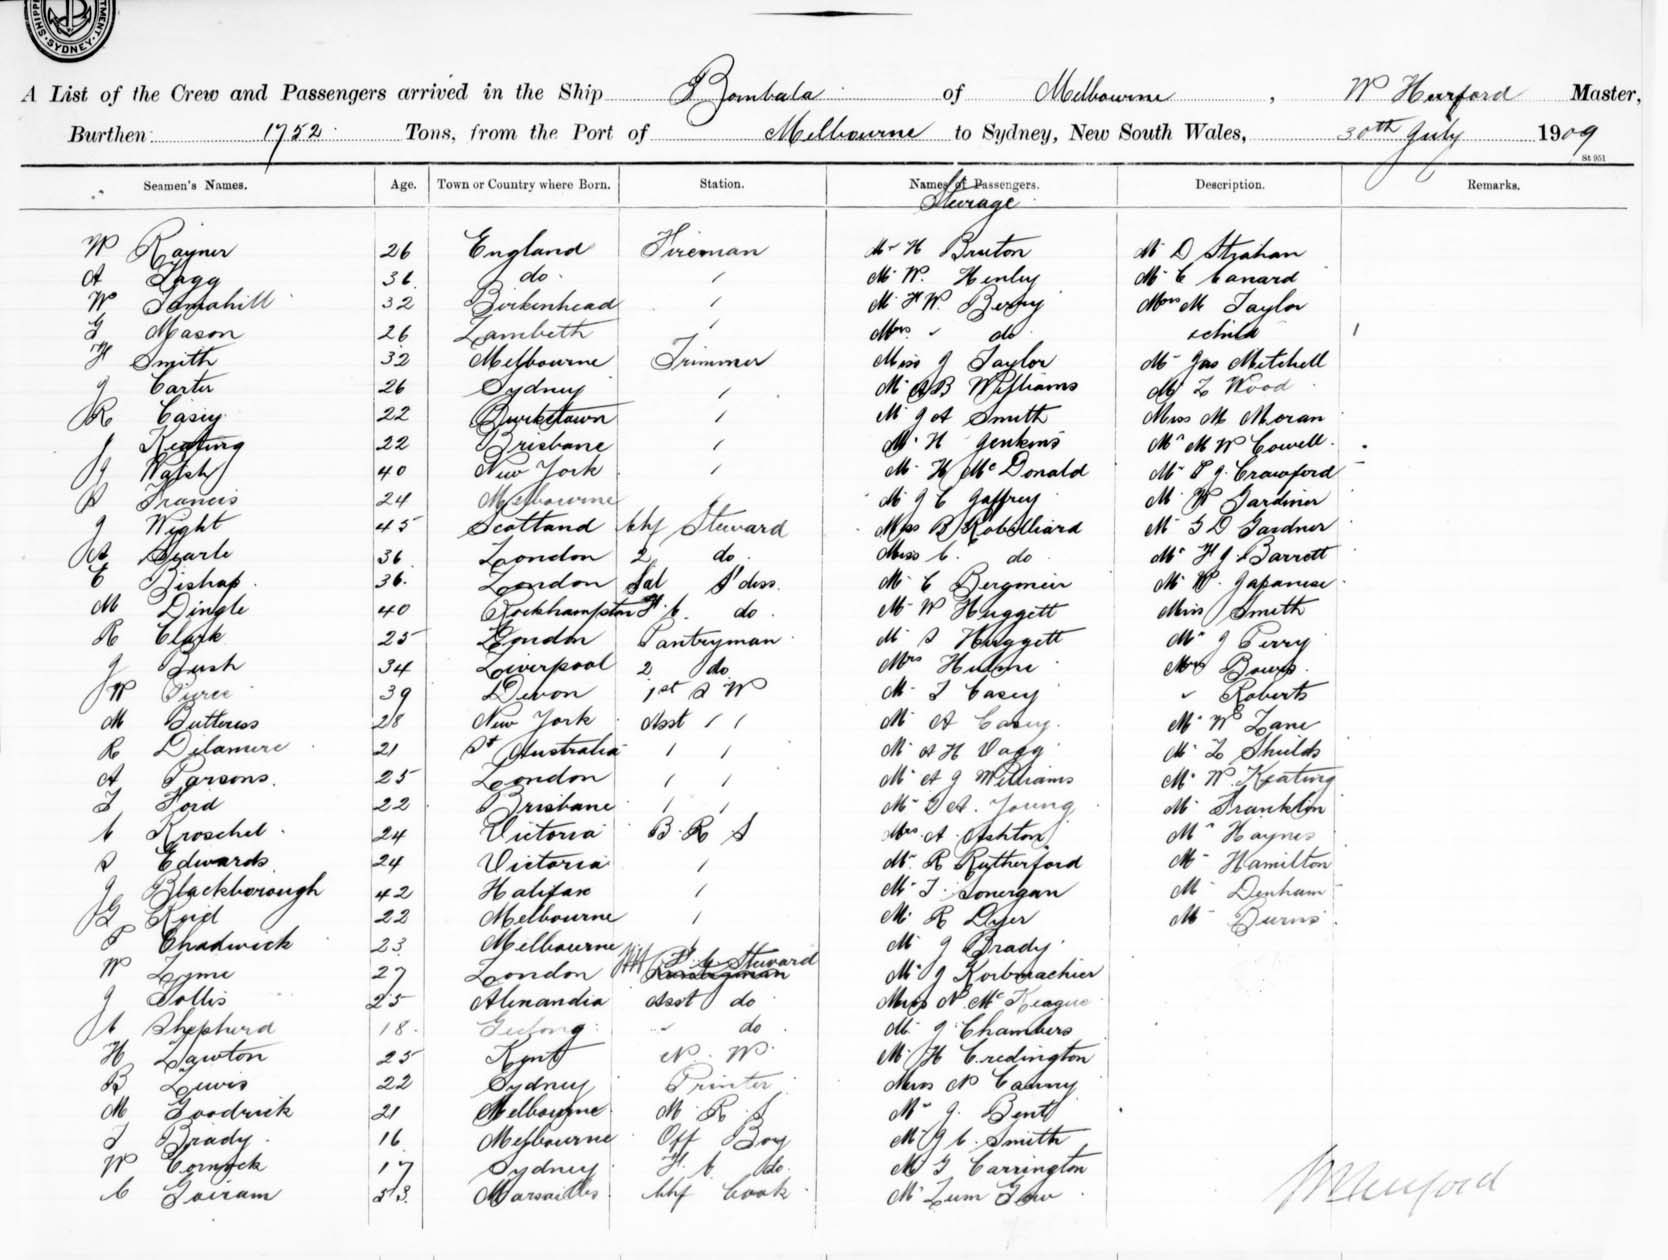 SHIPP
TMENT.
SYDNEY
A List of the Crew and Passengers arrived in the Ship Bombala of Melbourne, W Hurford Master,
Burthen 1752 Tons, from the Port of Melbourne to Sydney, New South Wales, 30th July 1909
St 951
Seamen's Names. Age. Town or Country where Born. Station. Names of Passengers. Description. Remarks.
Steerage
W Rayner 26 England Fireman Mr H Bruton Mr D Strahan
A 36 do. / Mr W. Henley Mr C Canard
W 32 Birkenhead / Mr H W. Berry Mrs M Taylor
G Mason 26 Lambeth / Mrs " do child 1
H Smith 32 Melbourne Trimmer Miss J Taylor Mr Jas Mitchell
J Carter 26 Sydney / Mr A B Williams Mr L Wood
R Casey 22 / Mr J A Smith Miss M Moran
J Keating 22 Brisbane / Mr H Jenkins Mr M W Cowell
J Walsh 40 New York / Mr H McDonald Mr J. Crawford
S Francis 24 Melbourne Mr J C Gaffrey Mr W Gardiner
J Wight 45 Scotland Chf Steward Miss B Robilliard Mr G D Gardner
A Searle 36 London 2 do. Miss C. do. Mr H J Barrett
C Bishop 36 London Sal S'dess. Mr C Mr W. Japanese
M Dingle 40 Rockhampton F. C. do. Mr W Huggett Miss Smith
R Clark 25 London Pantryman Mr S Huggett Mr J Perry
J Bush 34 Liverpool 2 do. Mrs Hulme Mrs
W Pierce 39 Devon 1st S W Mr T Casey " Roberts
M Buttress 28 New York Asst / / Mr A Casey Mr W Lane
R Delamere 21 St Australia / / Mr A H Vagg Mr L Shields
A Parsons 25 London / / Mr A J Williams Mr W. Keating
T Ford 22 Brisbane / / Mr G A. Young Mr Franklin
C Kroschel 24 Victoria B. R S Mrs A. Ashton Mr Haynes
S Edwards 24 Victoria / Mr R Rutherford Mr Hamilton
J Blackborough 42 Halifax / Mr T Lonergan Mr Denham
G Reid 22 Melbourne / Mr R Dyer Mr Burns
P Chadwick 23 Melbourne F. C Steward Mr J Brady
W Lyme 27 London Pantryman Mr J Korbmachier
J Follis 25 Alexandia Asst do Miss N. McKeague
C Shepherd 18 Geelong " do Mr J Chambers
H Lawton 25 Kent N. W Mr H Credington
B Lewis 22 Sydney Printer Miss N Canny
M Goodrick 21 Melbourne M. R. S Mr J. Bent
J Brady 16 Melbourne Off Boy Mr J C. Smith
W Cornock 17 Sydney F. C do. Mr G Carrington
C Goiram 53 Marsailles Chf Cook Mr Lum Gow
W Hurford